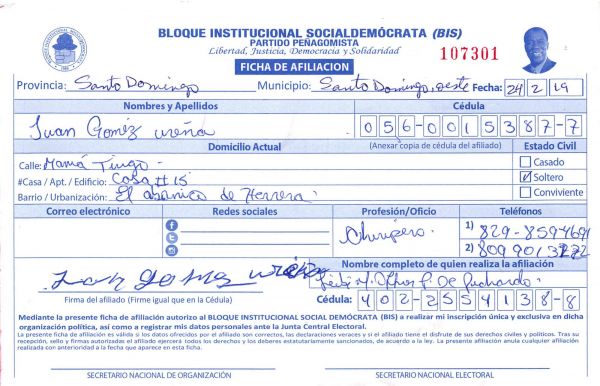 BLOQUE INSTITUCIONAL SOCIALDEMÓCRATA (BIS)
PARTIDO PEÑAGOMISTA
Libertad, Justicia, Democracia y Solidaridad
107301
FICHA DE AFILIACION
Provincia: Santo Domingo Municipio: Santo Domingo, oeste Fecha: 24 2 19
Nombres y Apellidos Cédula
Juan Gomez ureña 056-0015387-7
Domicilio Actual (Anexar copia de cédula del afiliado) Estado Civil
Calle: Mamá Tingo - Casado
#Casa / Apt. / Edificio: Casa # 15 Soltero
Barrio / Urbanización: El abanico de Herrera Conviviente
Correo electrónico Redes sociales Profesión/Oficio Teléfonos
Chiripero 1) 829-859
2) 809 901
Nombre completo de quien realiza la afiliación
Juan gomez ureña
Firma del afiliado (Firme igual que en la Cédula) Cédula: 402-2554138-8
Mediante la presente ficha de afiliación autorizo al BLOQUE INSTITUCIONAL SOCIAL DEMÓCRATA (BIS) a realizar mi inscripción única y exclusiva en dicha
organización política, así como a registrar mis datos personales ante la Junta Central Electoral.
La presente ficha de afiliación es válida si los datos ofrecidos por el afiliado son correctos, las declaraciones veraces y si el afiliado tiene el disfrute de sus derechos civiles y políticos. Tras su
recepción, sello y firmas autorizadas el afiliado ejercerá todos los derechos y los deberes estatutariamente sancionados, de acuerdo a la ley. La presente afiliación anula cualquier afiliación
realizada con anterioridad a la fecha que aparece en esta ficha.
SECRETARIO NACIONAL DE ORGANIZACIÓN SECRETARIO NACIONAL ELECTORAL